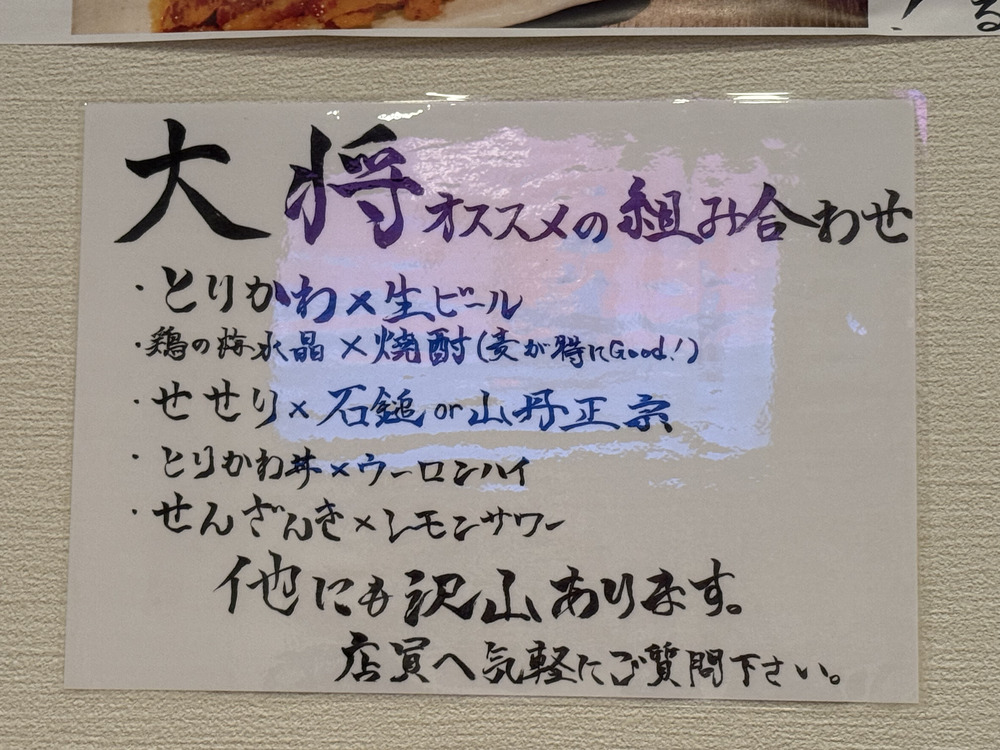 る
大将オススメの組み合わせ
・とりかわ×生ビール
・鶏の梅水晶×焼酎(麦が特にGood!)
・せせり×石鎚or山丹正宗
・とりかわ丼×ウーロンハイ
・せんざんき×レモンサワー
他にも沢山あります。
店員へ気軽にご質問下さい。